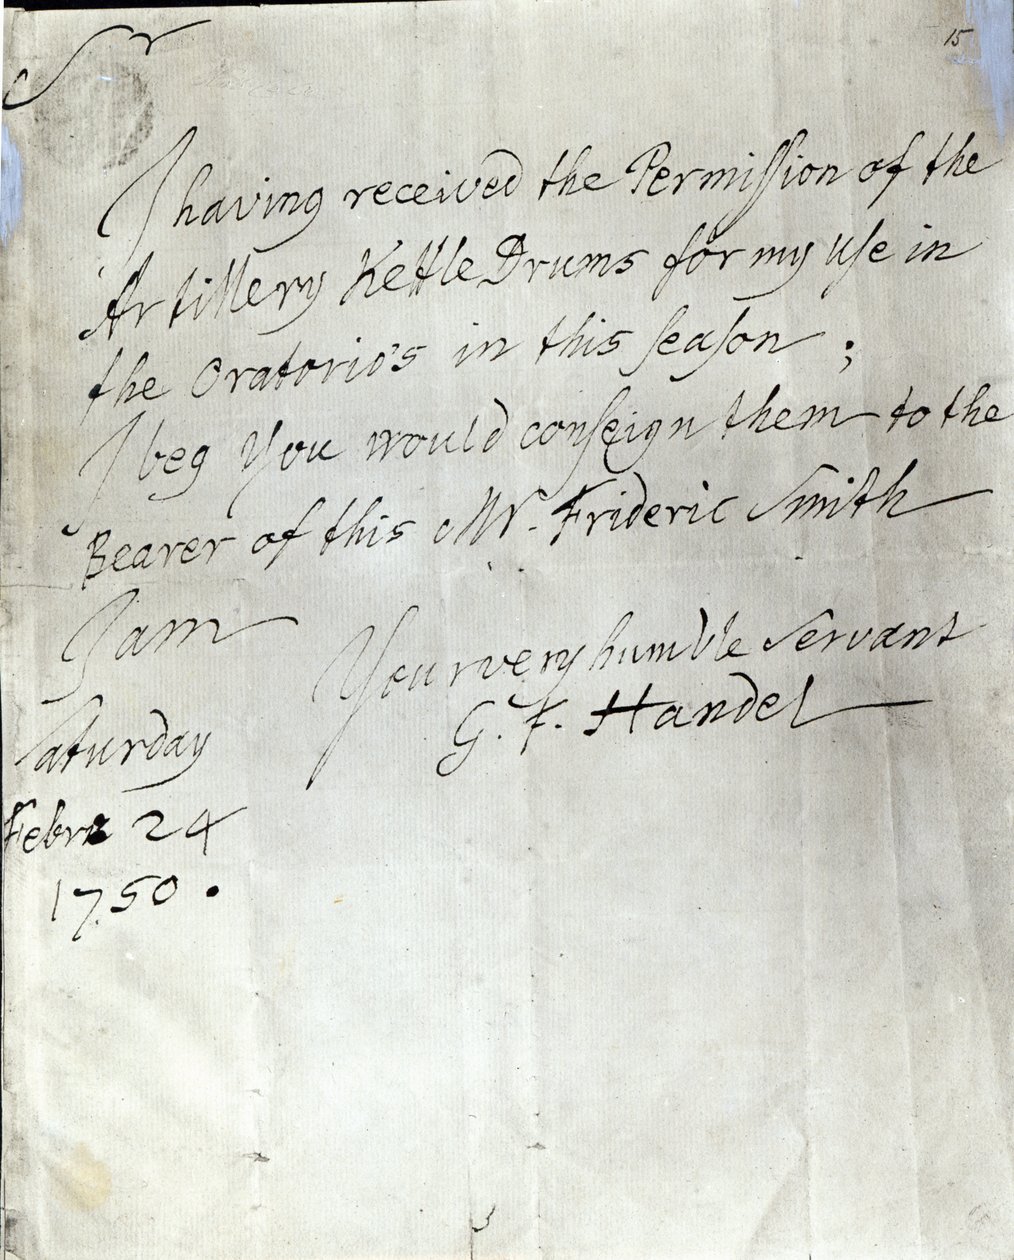 15
Sr
I having received the Permiſſion of the
Artillery Kettle Drums for my uſe in
the Oratorio's in this ſeaſon ;
I beg You would conſeign them to the
Bearer of this Mr. Frideric Smith
I am
Your very humble Servant
G. F. Handel
Saturday
Febr: 24
1750.